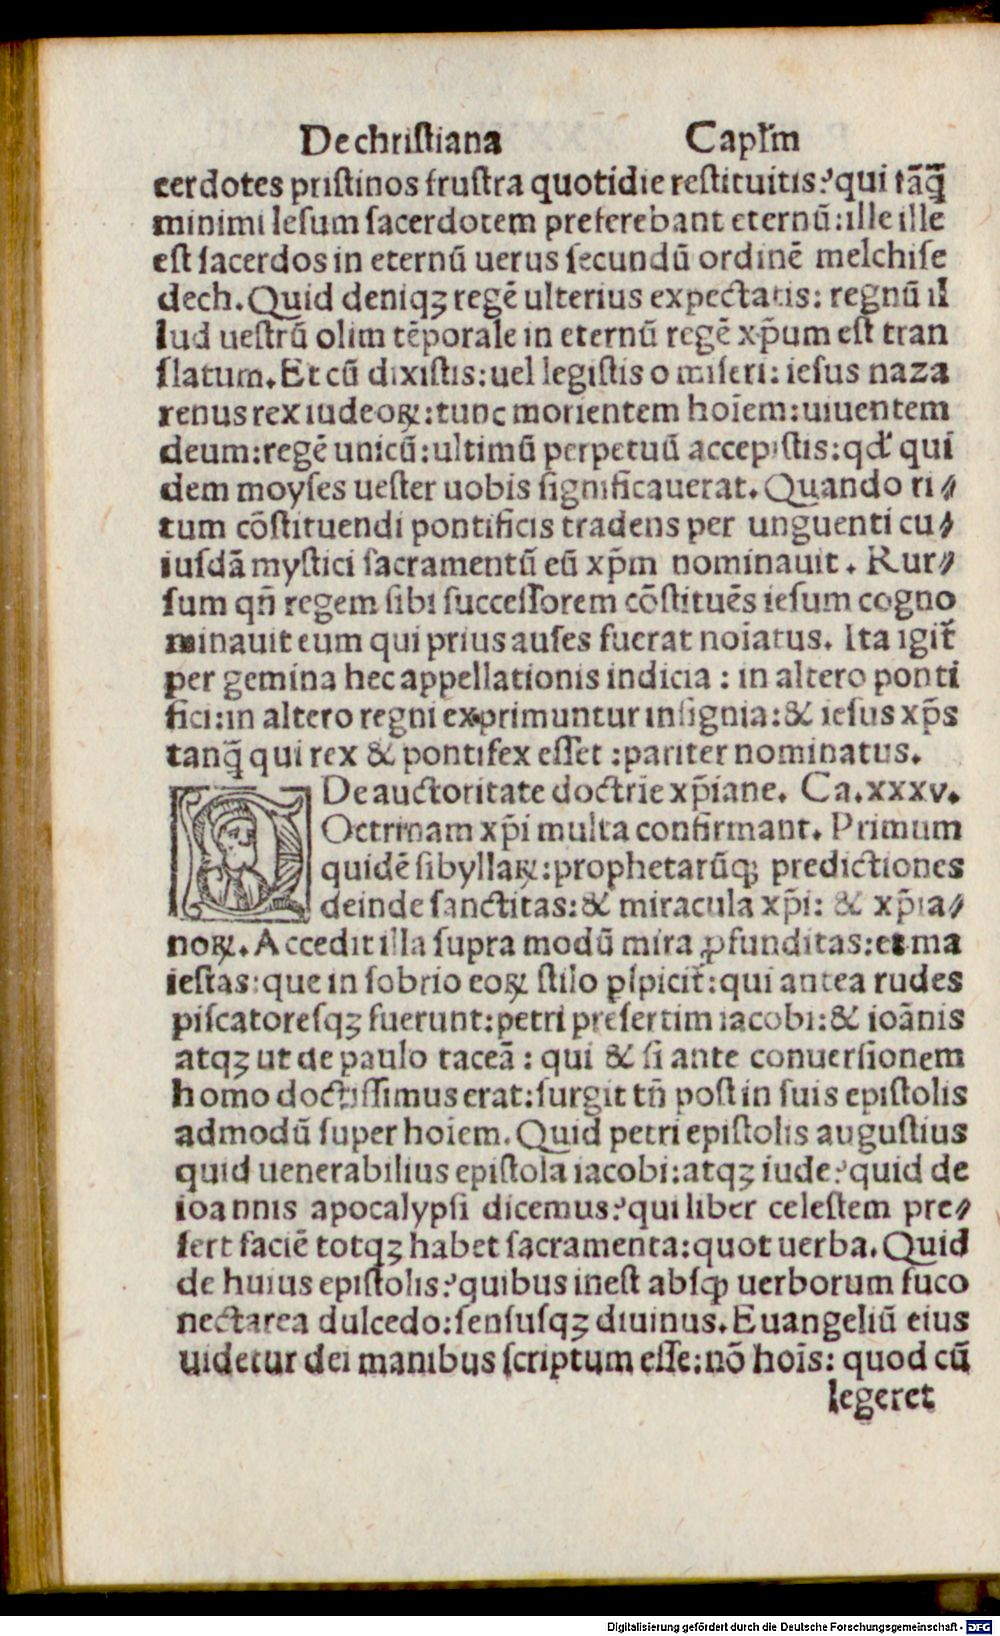 De christiana Capłm
cerdotes pristinos frustra quotidie restituitis? qui tāq̄
minimi Iesum sacerdotem preferebant eternū: ille ille
est sacerdos in eternū uerus secundū ordinē melchise
dech. Quid deniqꝫ regē ulterius expectatis: regnū il
lud uestrū olim tēporale in eternū regē xp̄um est tran
slatum. Et cū dixistis: uel legistis o miseri: iesus naza
renus rex iudeoꝝ: tunc morientem hoīem: uiuentem
deum: regē unicū: ultimū perpetuū accepistis: qd' qui
dem moyses uester uobis significauerat. Quando ri⸗
tum cōstituendi pontificis tradens per unguenti cu⸗
iusdā mystici sacramentū eū xp̄m nominauit. Rur⸗
sum qn̄ regem sibi successorem cōstituēs iesum cogno
minauit eum qui prius auses fuerat noīatus. Ita igit̄
per gemina hec appellationis indicia: in altero ponti
fici: in altero regni exprimuntur insignia: & iesus xp̄s
tanq̄ qui rex & pontifex esset: pariter nominatus.
De auctoritate doctrīe xp̄iane. Ca. xxxv.
DOctrinam xp̄i multa confirmant. Primum
quidē sibyllaꝝ: prophetarūqꝫ predictiones
deinde sanctitas: & miracula xp̄i: & xp̄ia⸗
noꝝ. Accedit illa supra modū mira ꝓfunditas: et ma
iestas: que in sobrio eoꝝ stilo ꝑspicit̄: qui antea rudes
piscatoresqꝫ fuerunt: petri presertim iacobi: & ioānis
atqꝫ ut de paulo taceā: qui & si ante conuersionem
homo doctissimus erat: surgit tn̄ post in suis epistolis
admodū super hoīem. Quid petri epistolis augustius
quid uenerabilius epistola iacobi: atqꝫ iude? quid de
ioannis apocalypsi dicemus? qui liber celestem pre⸗
fert faciē totqꝫ habet sacramenta: quot uerba. Quid
de huius epistolis? quibus inest absqꝫ uerborum fuco
nectarea dulcedo: sensusqꝫ diuinus. Euangeliū eius
uidetur dei manibus scriptum esse: nō hoīs: quod cū
legeret
Digitalisierung gefördert durch die Deutsche Forschungsgemeinschaft - DFG